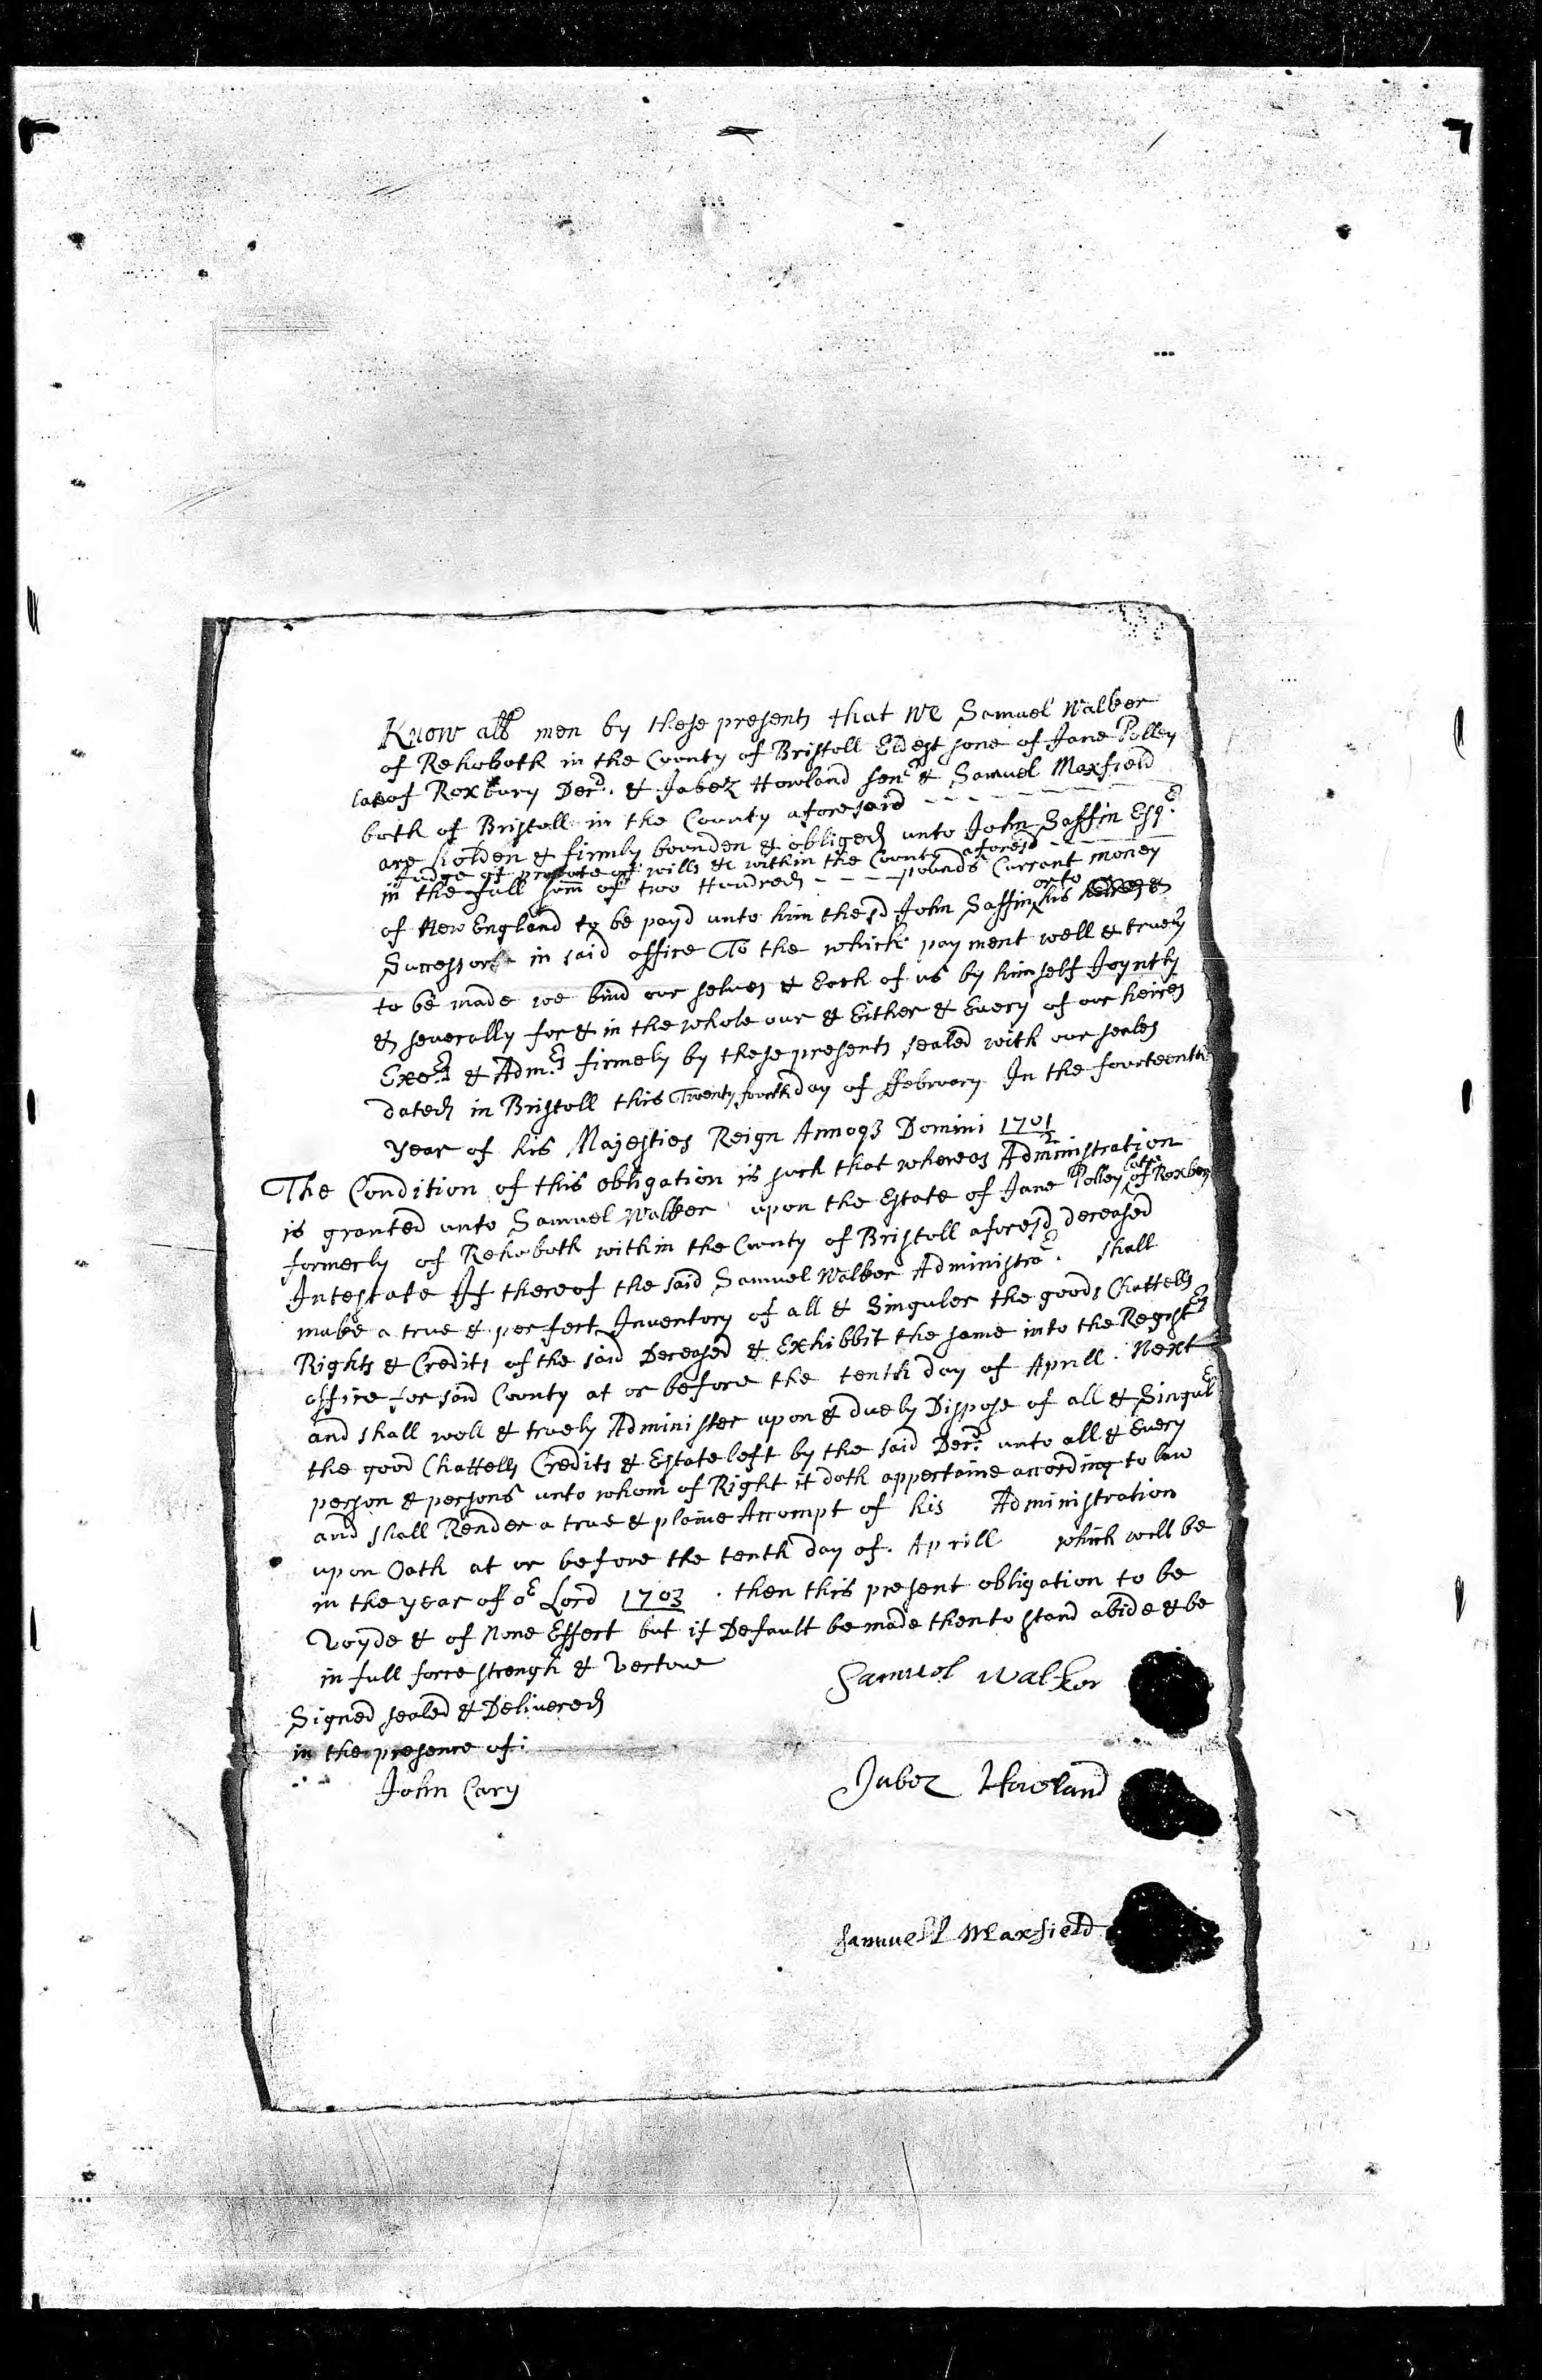 Know all men by these presents that we Samuel Walker
of Rehoboth in the County of Bristoll Eldest sone of Jane Polley
late of Roxbury Decd. & Jabez Howland senr & Samuel Maxfield
both of Bristoll in the County aforesaid - - - - - -
are holden & firmly bounden & obliged unto John Saffin Esqr.
Judge of probate of wills &c within the County aforesd - - -
in the full som of two Hundred - - - - pounds Currant money
of New England to be payd unto him the sd John Saffin or to his
Successors in said office To the which payment well & truely
to be made we bind our selves & Each of us by himself Joyntly
& severally for & in the whole our & Either & Every of our heires
Exers & Admrs firmely by these presents sealed with our seales
dated in Bristoll this Twenty fourth day of ffebruary In the fourteenth
Year of his Majesties Reign Annoq3 Domini 1701/2
The Condition of this obligation is such that whereas Administration
is granted unto Samuel Walker upon the Estate of Jane Polley late of Roxbery
formerly of Rehoboth within the County of Bristoll aforesd deceased
Intestate If thereof the said Samuel Walker Administrar. shall
make a true & perfect Inventory of all & Singuler the goods Chattells
Rights & Credits of the said Deceased & Exhibbit the same into the Registrs
office for said County at or before the tenth day of Aprill. Next
and shall well & truely Administer upon & duely Dispose of all & Singulr
the good Chattells Credits & Estate left by the said Decd. unto all & Every
person & persons unto whom of Right it doth appertaine according to law
and shall Render a true & plaine Accompt of his Administration
upon Oath at or before the tenth day of. Aprill which will be
in the year of or Lord 1703 . then this present obligation to be
Voyde & of None Effect but if Default be made then to stand abide & be
in full force strengh & Vertue
Samuel Walker
Signed sealed & Delivered
in the presence of:
John Cary
Jabez Howland
Samuell Maxfield